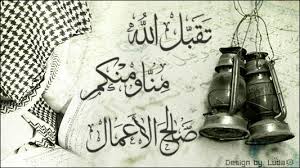 تقبل الله
منا ومنكم
صالح الأعمال
Design by Luaa